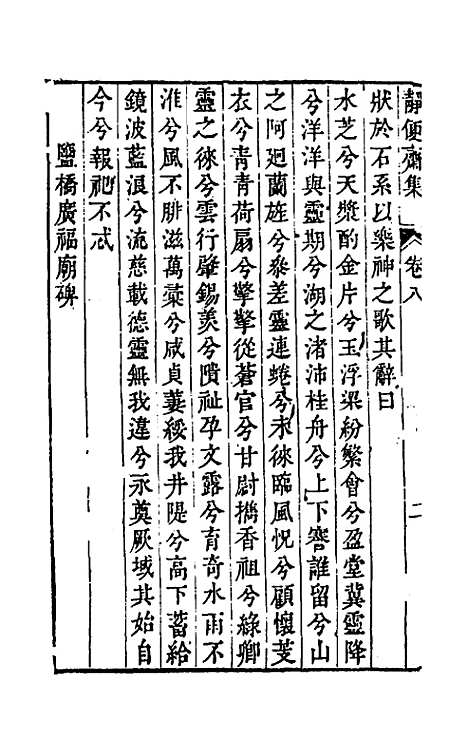 靜便齋集 卷八 二
狀於石系以樂神之歌其辭曰
水芝兮天漿酌金片兮玉浮梁紛繁會兮盈堂冀靈降
兮洋洋與靈期兮湖之渚沛桂舟兮上下謇誰留兮山
之阿迴蘭旌兮參差靈連蜷兮未徠臨風怳兮顧懷芰
衣兮青青荷扇兮擎擎從蒼官兮甘尉攜香祖兮綠卿
靈之徠兮雲行肇錫羨兮隤祉孕文露兮育奇水雨不
淮兮風不腓滋萬蘂兮咸貞蔞綏我井隄兮高下蓄給
鏡波藍浪兮流慈載德靈無我違兮永奠厥域其始自
今兮報祀不忒
鹽橋廣福廟碑